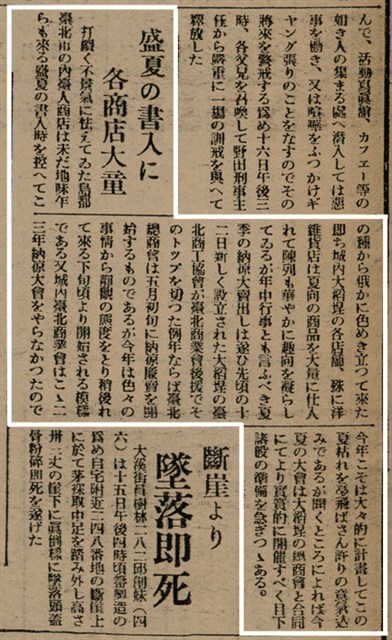 んで、活動寫眞舘、カフエー等の
如き人の集まる處へ潜入しては惡
事を働き、又は喧嘩をふつかけギ
ヤング張りのことをなすのでその
將來を警戒する爲め十六日午後三
時、各父兄を召喚して野田刑事主
任から嚴重に一場の訓戒を與へて
釋放した
盛夏の書入に
各商店大童
打續く不景氣に怯えてゐた島都
臺北市の内臺人商店は未だ地味乍
らも來る盛夏の書入時を控へてこ
の種から俄かに色めき立つて來た
即ち城内大稻埕の各店舖、殊に洋
雜貨店は夏向の商品を大量に仕入
れて陳列も華やかに趣向を凝らし
てゐるが年中行事とも言ふべき夏
季の納凉大賣出しは遂ひ先頃の十
二日新しく設立された大稻埕の臺
北商工協會が臺北商業會後援でそ
のトツプを切つた例年ならば臺北
總商會は五月初旬に納凉廉賣を開
始するものであるが今年は色々の
事情から靜觀の態度をとり稍後れ
て來る下旬頃より開始される模樣
である又城内臺北商業會はこゝ二
三年納凉大會をやらなかつたので
今年こそは大々的に計畫してこの
夏枯れを飛ばさん許りの意氣込
みであるが聞くところによれば今
夏の大會は大稻埕の總商會と合同
にてより實質的に開催すべく目下
諸般の準備を急ぎつゝある。
斷崖より
墜落即死
大溪街員樹林二八二邱妹(四
六)は十五日午後四時頃製造の
爲め自宅附近二四八番地の斷崖上
に於て茅採取中足を踏み外し高さ
卅二丈の崖下に眞倒樣に墜落頭蓋
骨粉碎即死を遂げた